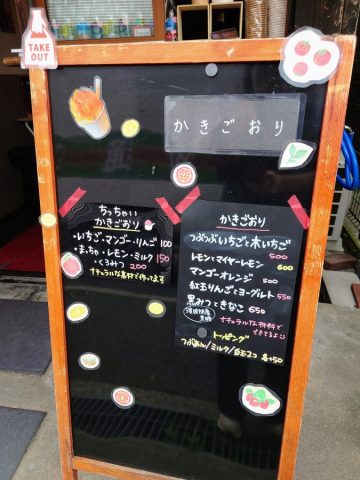 TAKE
OUT
かきごおり
ちっちゃい
かきごおり
・いちご・マンゴー・りんご 100
・まっちゃ・レモン・ミルク 150
・くろみつ 200
ナチュラルな素材で作ってます
かきごおり
つぶつぶいちごと木いちご
500
レモンとマイヤーレモン
600
マンゴーオレンジ 500
紅玉りんごとヨーグルト 550
黒みつときなこ 650
ナチュラルな材料で
できてるよ
トッピング
つぶあん/ミルク/白玉2コ 各+50